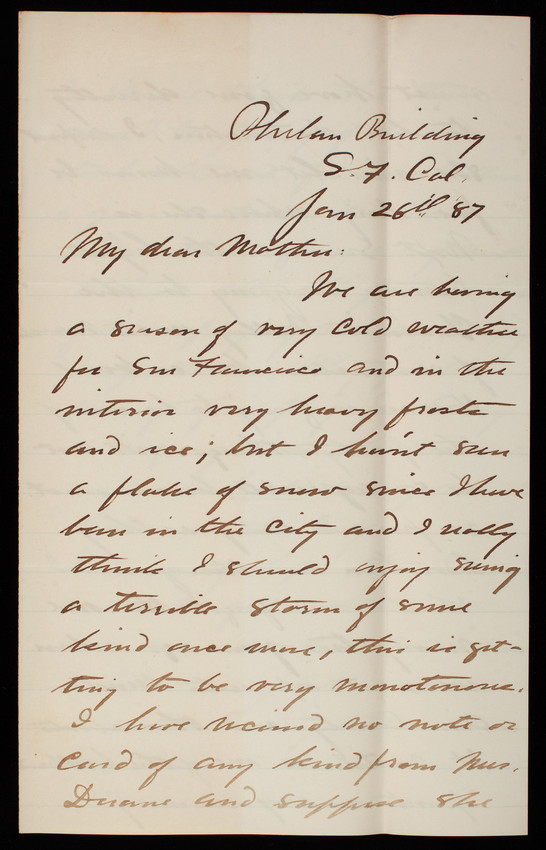 Phelan Building
S.F. Cal.
Jan 26th 87
My dear Mother:
We are having
a season of very cold weather
for San Francisco and in the
interior very heavy frosts
and ice; but I hav'nt seen
a flake of snow since I have
been in the city and I really
think I should enjoy seeing
a terrible storm of some
kind once more, this is get-
ting to be very monotonous.
I have recieved no note or
card of any kind from Mrs.
Duane and suppose she